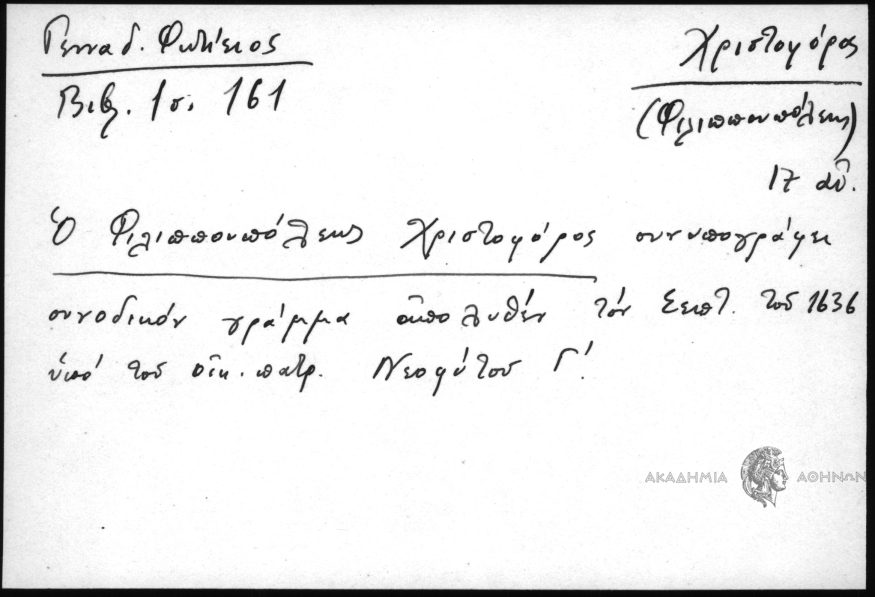 Γενναδ. Φωτίειος
Βιβλ. 1σ. 161
Χριστοφόρος
(Φιλιππουπόλεως)
17 αἰ.
Ὁ Φιλιππουπόλεως Χριστοφόρος συνυπογράφει
συνοδικόν γράμμα ἀπολυθέν τόν Σεπτ. τοῦ 1636
ὑπό τοῦ οἰκ. πατρ. Νεοφύτου Γ΄.
ΑΚΑΔΗΜΙΑ ΑΘΗΝΩΝ